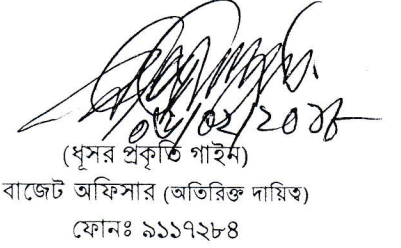 (ধূসর প্রকৃতি গাইন)
বাজেট অফিসার (অতিরিক্ত দায়িত্ব)
ফোনঃ ৯১১৭২৮৪